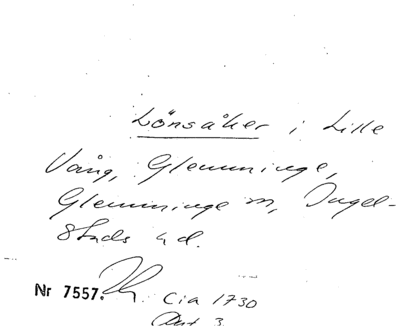 Lönsåker i Lille
Vång, Glemminge,
Glemminge m, Ingel-
stads hd.
Nr 7557.
Cia 1730
Akt 3